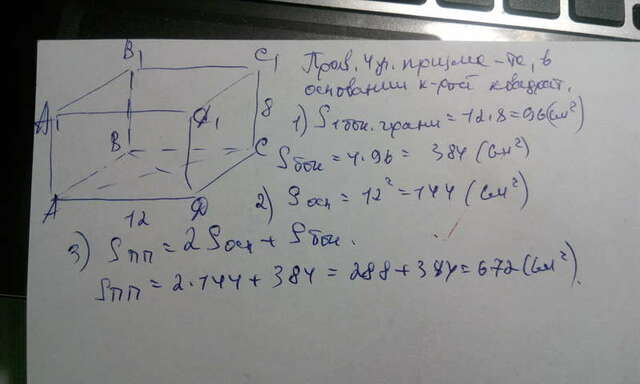 B₁ C₁
A₁ D₁
B C
8
A D
12
Прав. 4 уг. призма – та, в
основании к-рой квадрат.
1) S 1 бок. грани = 12 . 8 = 96 (см²)
S бок = 4 . 96 = 384 (см²)
2) S осн = 12² = 144 (см²)
3) S пп = 2 S осн + S бок.
S пп = 2 . 144 + 384 = 288 + 384 = 672 (см²).